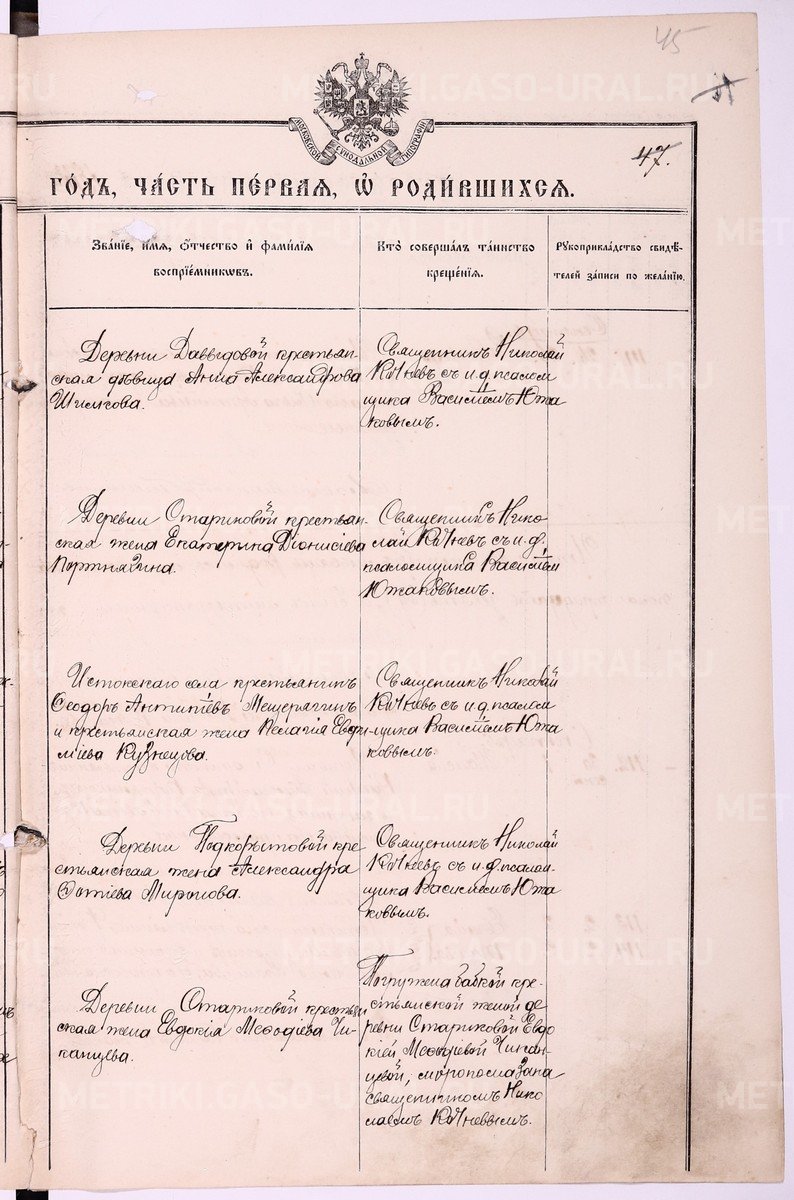 45
47.
МОСКОВСКОЙ СѴНОДАЛЬНОЙ ТИПОГРАФІИ
ГО́ДЪ, ЧА́СТЬ ПЕ́РВАЯ, Ѽ РОДИ́ВШИХСЯ.
Зва́нїе, и́мя, о́тчество и҆ фами́лїя
воспрїе́мникѡвъ.
Кто̀ соверша́лъ та́инство
креще́нїя.
Рꙋкоприкла́дство свидѣ́-
телей за́писи по жела́нїю.
Деревни Давыдовой крестьян-
ская дѣвица Анна Александрова
Шилкова.
Священникъ Николай
Кочневъ съ и. д. псалом
щика Василіемъ Южа
ковымъ.
Деревни Стариковой крестьян-
ская жена Екатерина Діонисіева
Портнягина.
Священникъ Нико
лай Кочневъ съ и. д.
псаломщика Василіем
Южаковымъ.
Истокскаго села крестьянинъ
Ѳеодоръ Антипіевъ Мещерягинъ
и крестьянская жена Пелагія Евѳи
міева Кузнецова.
Священникъ Николай
Кочневъ съ и. д. псалом
щика Василіемъ Южа
ковымъ.
Деревни Подкорытовой кре
стьянская жена Александра
Фотіева Миронова.
Священникъ Николай
Кочневъ съ и. д. псалом-
щика Василіемъ Южа
ковымъ.
Деревни Стариковой крестьян
ская жена Евдокія Меѳодіева Чи-
канцева.
Погружена бабкой кре-
стьянской женой де
ревни Стариковой Евдо
кіей Меѳодіевой Чикан-
цевой, мѵропомазана
священникомъ Нико
лаемъ Кочневымъ.
METRIKI.GASO-URAL.RU